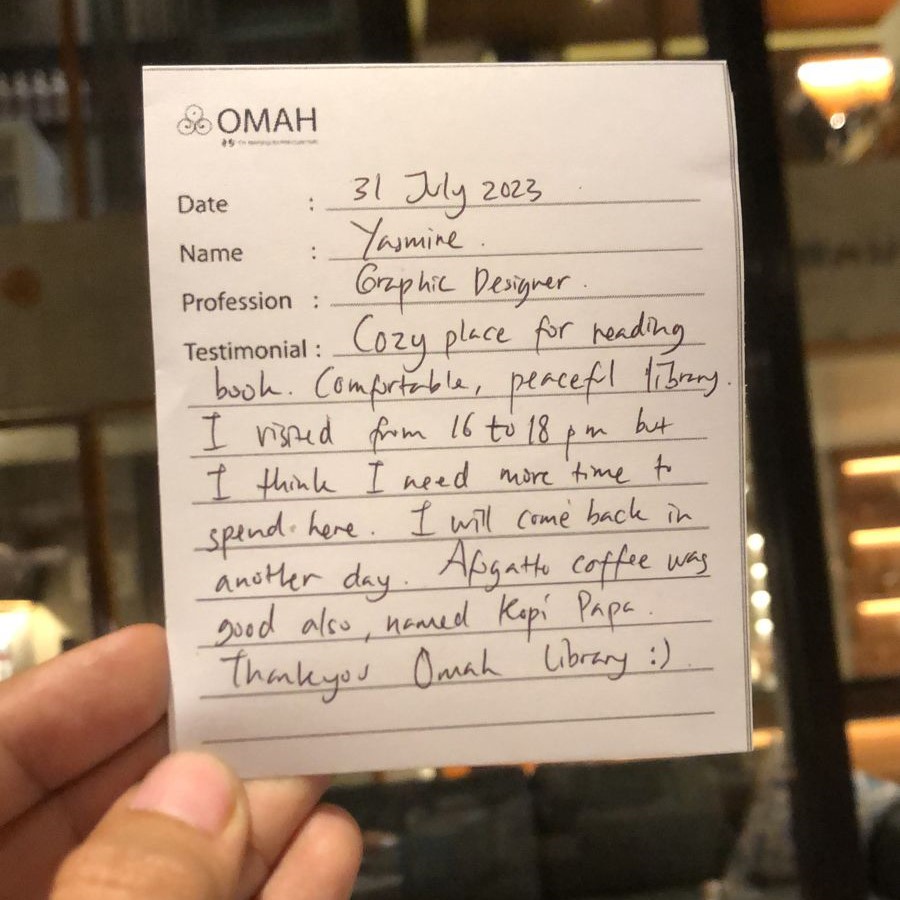 OMAH
Date : 31 July 2023
Name : Yasmine.
Profession : Graphic Designer.
Testimonial : Cozy place for reading
book. Comfortable, peaceful library.
I visited from 16 to 18 pm but
I think I need more time to
spend here. I will come back in
another day. Afogatto coffee was
good also, named Kopi Papa.
Thankyou Omah Library :)